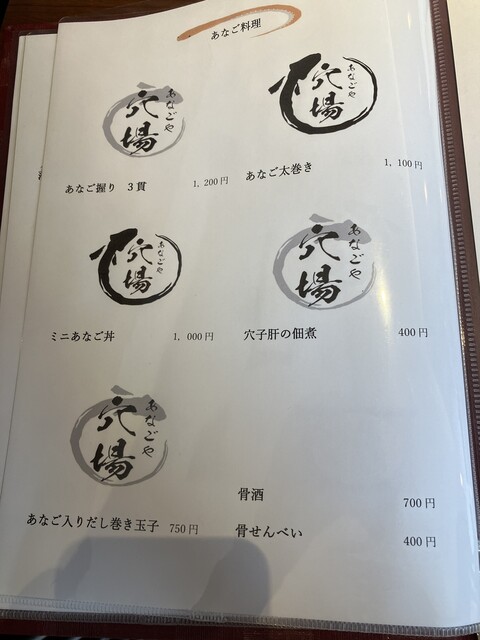 あなご料理
穴場
あなごや
あなご握り 3貫 1,200円
穴場
あなごや
あなご太巻き 1,100円
穴場
あなごや
ミニあなご丼 1,000円
穴場
あなごや
穴子肝の佃煮 400円
穴場
あなごや
あなご入りだし巻き玉子 750円
骨酒 700円
骨せんべい 400円